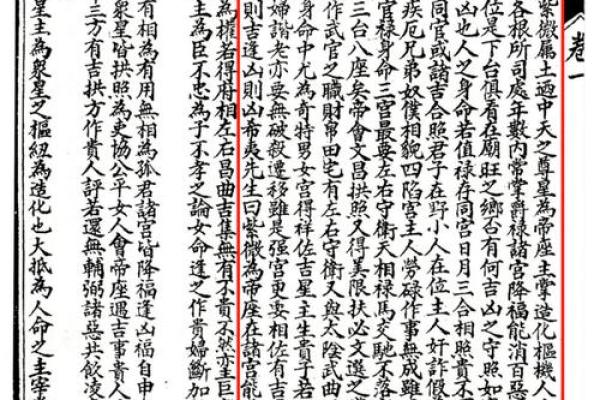 卷一
紫微屬土廼中天之尊星為帝座主掌造化樞機人
各根所司處年數內常掌爵祿諸宮降福能消百惡
位是下台俱看在廟旺之鄉否有何吉凶之守照如
凶也人之身命若值祿存同宮日月三合相照貴不
同官或諸吉合照君子在野小人在位主人奸詐假
疾厄兄弟奴僕相貌四陷宮主人勞碌作事無成雖
官祿身命三宮最要左右守衛天相祿馬交馳不落
三台八座矣帝會文昌拱照又得美限扶必文選之
作武官之職財帛田宅有左右守衛又與太陰武曲
身命中尤為奇特男女宮得祥佐吉星主生貴子若
婦諧老亦要無破殺遷移雖是强宮更要相佐有吉
則吉逢凶則凶希夷先生曰紫微為帝座在諸宮能
為權若得府相左右昌曲吉集無有不貴不然亦主巨
主為臣不忠為子不孝之論女命逢之作貴婦斷加
有相為有用無相為孤君諸宮皆降福逢凶福自申
衆星皆拱照為吏協公平女人會帝座遇吉事貴人
三方有吉拱方作貴人評若還無輔弼諸惡共飲凌
星主為衆星之樞紐為造化也大抵為人命之主宰